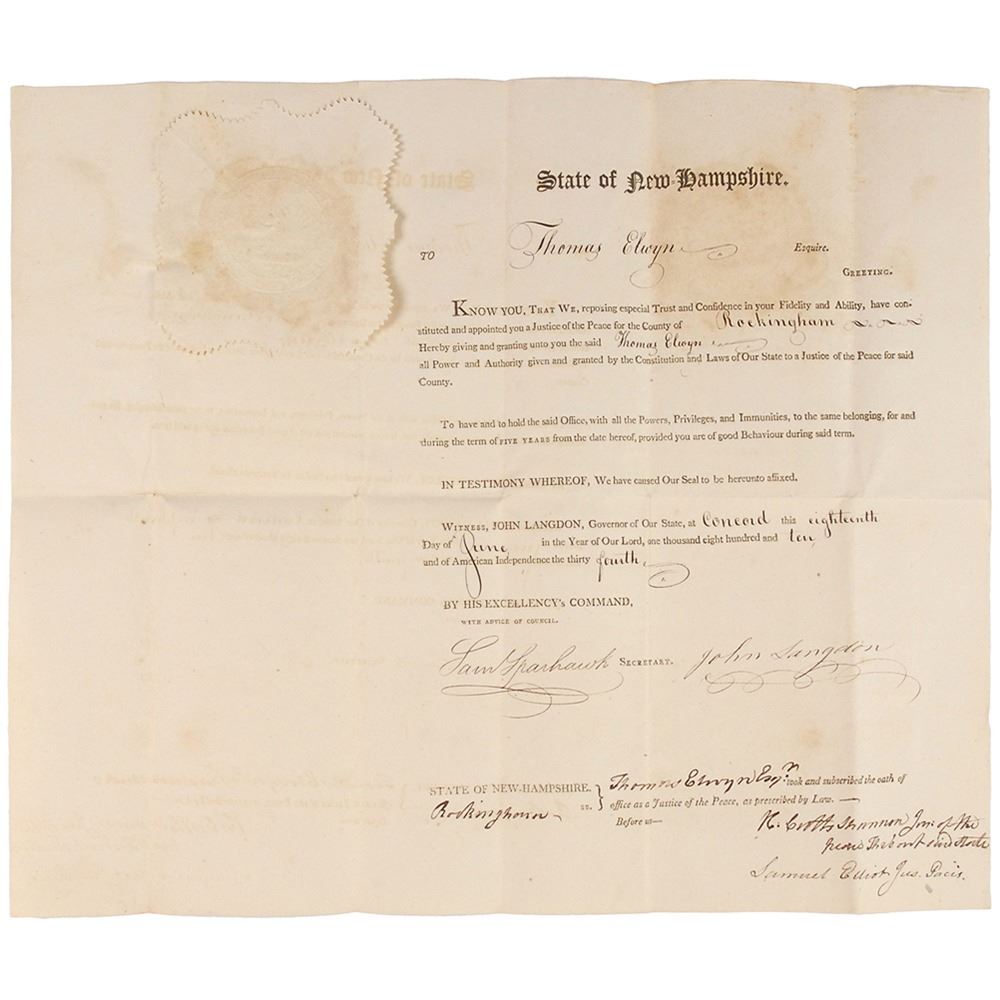 State of New-Hampshire.
TO Thomas Elwyn Esquire.
GREETING.
KNOW YOU, THAT WE, reposing especial Trust and Confidence in your Fidelity and Ability, have con-
stituted and appointed you a Justice of the Peace for the County of Rockingham
Hereby giving and granting unto you the said Thomas Elwyn
all Power and Authority given and granted by the Constitution and Laws of Our State to a Justice of the Peace for said
County.
To have and to hold the said Office, with all the Powers, Privileges, and Immunities, to the same belonging, for and
during the term of FIVE YEARS from the date hereof, provided you are of good Behaviour during said term.
IN TESTIMONY WHEREOF, We have caused Our Seal to be hereunto affixed.
WITNESS, JOHN LANGDON, Governor of Our State, at Concord this eighteenth
Day of June in the Year of Our Lord, one thousand eight hundred and ten
and of American Independence the thirty fourth
BY HIS EXCELLENCY's COMMAND,
WITH ADVICE OF COUNCIL.
Saml Sparhawk SECRETARY. John Langdon
STATE OF NEW-HAMPSHIRE. } Thomas Elwyn Esqr. took and subscribed the oath of
Rockingham ss. } office as a Justice of the Peace, as prescribed by Law. —
Before us—
Shannon of the
Samuel Elliot Jus. Pacis.